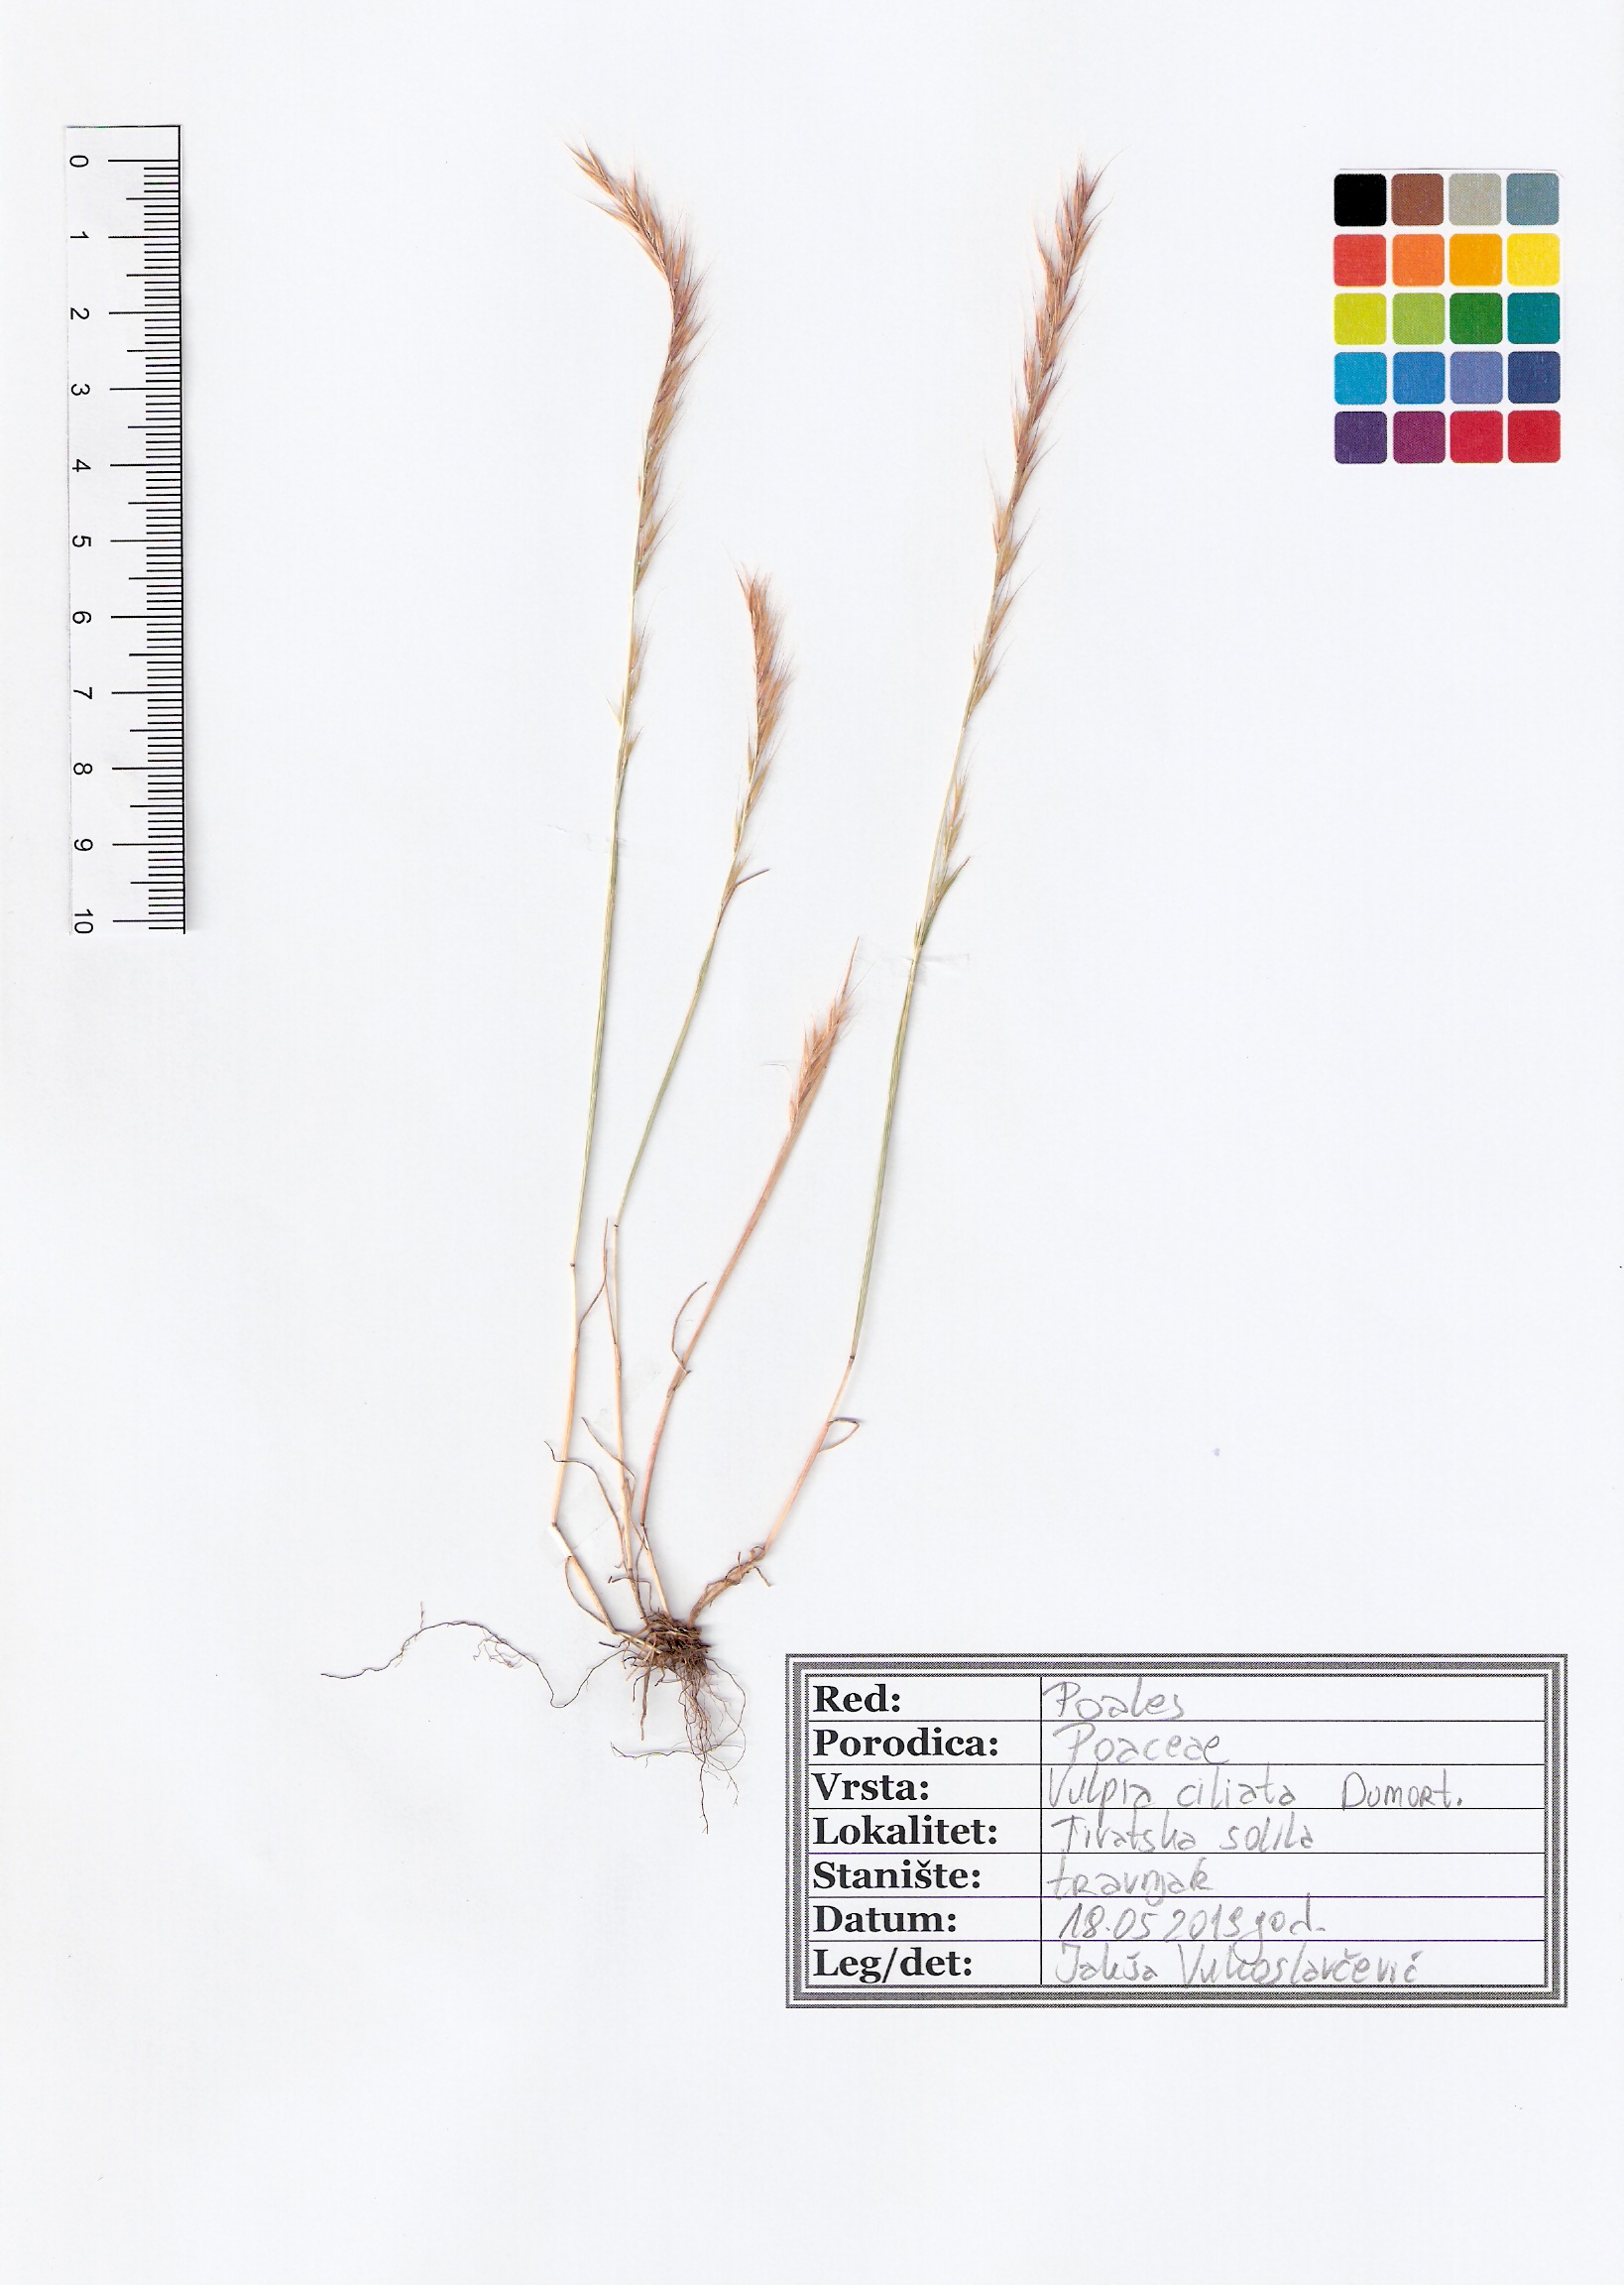 0
1
2
3
4
5
6
7
8
9
10
Red: Poales
Porodica: Poaceae
Vrsta: Vulpia ciliata Dumort.
Lokalitet: Tivatska solila
Stanište: travnjak
Datum: 18.05 2019 god.
Leg/det: Jakša Vukoslavčević